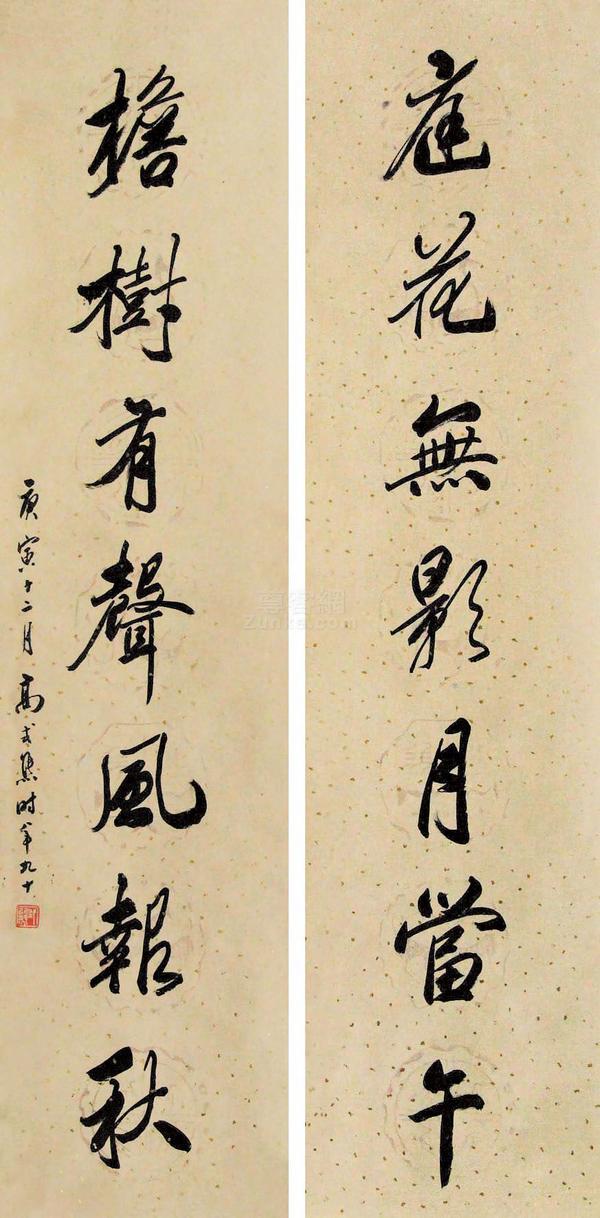 庭花無影月當午
檐樹有聲風報秋
庚寅十二月 高式熊時年九十
尊客網
Zunke.com